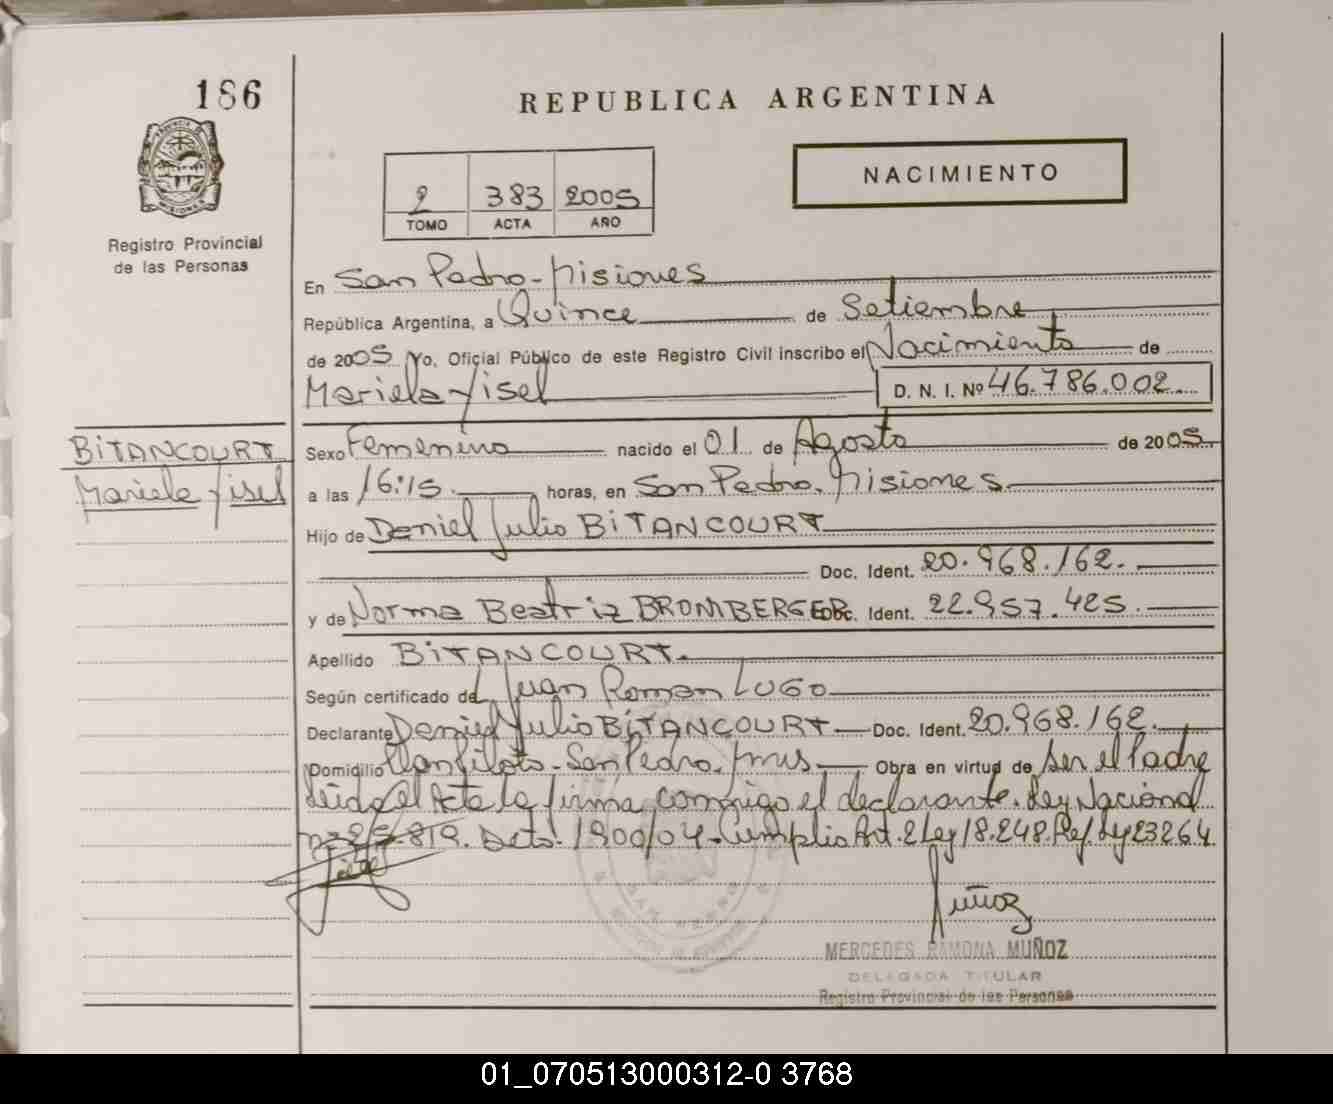 186
REPUBLICA ARGENTINA
NACIMIENTO
2 383 2005
TOMO ACTA AÑO
Registro Provincial
de las Personas
En San Pedro - Misiones
República Argentina, a Quince de Setiembre
de 2005 Yo, Oficial Público de este Registro Civil inscribo el Nacimiento de
Mariela Yisel D. N. I. Nº 46.786.002
BITANCOURT
Mariela Yisel
Sexo Femenino nacido el 01 de Agosto de 2005
a las 16:15 horas, en San Pedro. Misiones
Hijo de Daniel Julio BITANCOURT
Doc. Ident. 20.968.162.
y de Norma Beatriz BROMBERGER Doc. Ident. 22.957.425.
Apellido BITANCOURT.
Según certificado del Juan Roman LUGO
Declarante Daniel Julio BITANCOURT Doc. Ident. 20.968.162.
Domicilio San Pedro. Mnes Obra en virtud de Ser el Padre
Leida el Acta la firma conmigo el declarante. Ley Nacional
nº 25.819. Dcto. 1900/04 - Cumplio Art. 2 Ley 18.248. Ref. Ley 23264
Muñoz
MERCEDES RAMONA MUÑOZ
DELEGADA TITULAR
Registro Provincial de las Personas
01_070513000312-0 3768